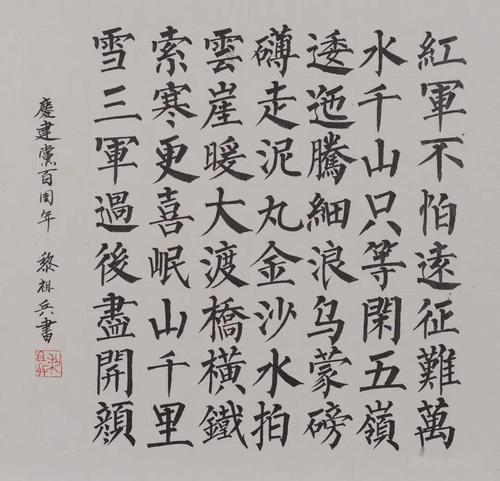 紅軍不怕遠征難萬
水千山只等閑五嶺
逶迤騰細浪乌蒙磅
礴走泥丸金沙水拍
雲崖暖大渡橋橫鐵
索寒更喜岷山千里
雪三軍過後盡開顏
慶建黨百周年 黎祖兵書